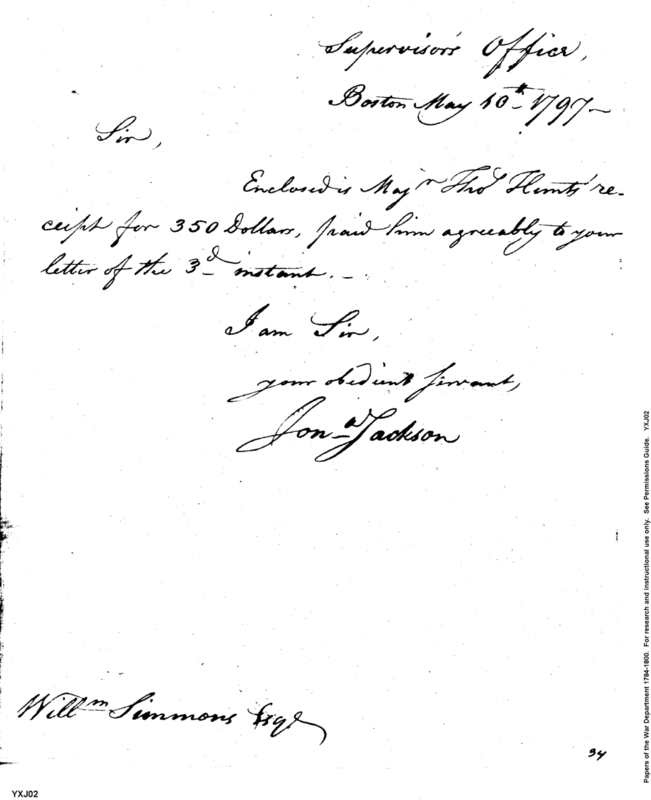 Supervisor's Office,
Boston May 10th 1797-
Sir,
Enclosed is Majr Thos Hunts' re-
ceipt for 350 Dollars, paid him agreeably to your
letter of the 3d instant.-
I am Sir,
your obedient servant,
Jona Jackson
Willm Simmons Esqr
34
YXJ02
Papers of the War Department 1784-1800. For research and instructional use only. See Permissions Guide. YXJ02